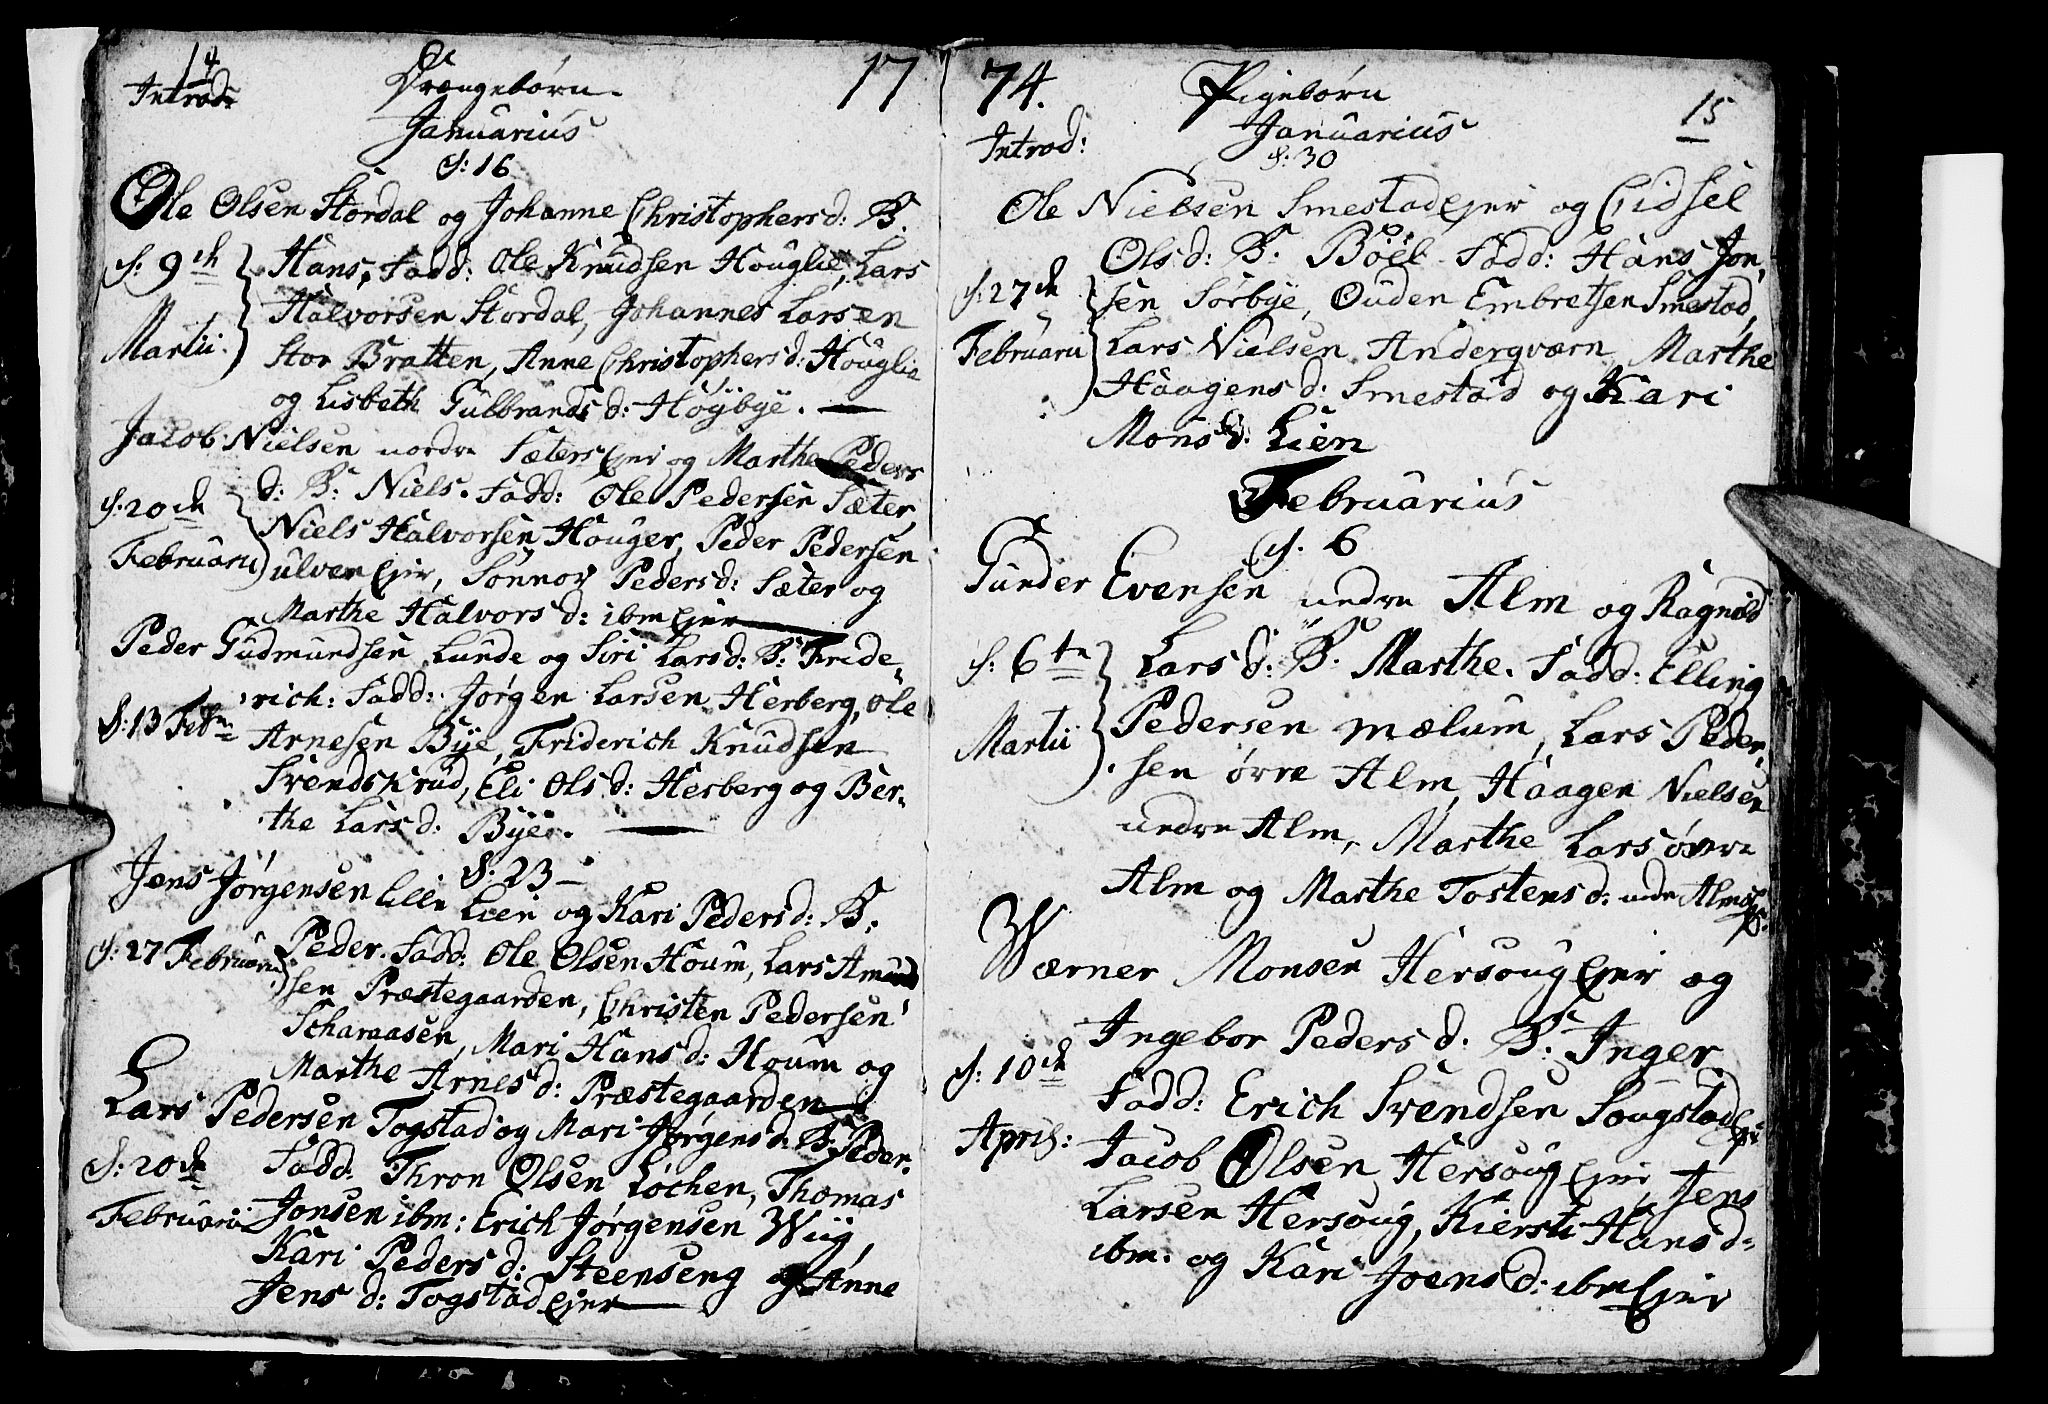 14
Introd:
Drængebørn.
17
Januarius
d: 16
Ole Olsen Stordal og Johanne Christophersd: B.
d: 9de Martii.
Hans, Fadd: Ole Knudsen Houglie, Lars
Halvorsen Stordal, Johannes Larsen
Stor Bratten, Anne Christophersd: Houglie
og Lisbeth Gulbrandsd: Höÿbÿe.
Jacob Nielsen nordre Sæters Ejer og Marthe Peders
d:20de Februarii
d: B: Niels. Fadd: Ole Pedersen Sæter,
Niels Halvorsen Houger, Peder Pedersen
ulven Ejer, Sönnov Pedersd: Sæter og
Marthe Halvorsd: ibm Ejer
Peder Gudmundsen Lunde og Siri Larsd: B: Fride,
d:13 Febr:
rich: Fadd: Jørgen Larsen Herberg, Ole
Arnesen Bÿe, Friderich Knudsen
Svendskrud, Eli Olsd: Herberg og Ber-
the Larsd: Bÿe.
d:23
Jens Jörgensen Lille Lien og Kari Pedersd: B:
d:27 Februarii
Peder. Fadd: Ole Olsen Houm, Lars Amund
sen Præstegaarden, Christen Pedersen
Scharaasen, Mari Hansd: Houm og
Marthe Arnesd: Præstegaarden
Lars Pedersen Togstad og Mari Jørgensd: B: Peder.
d:20de Februarii
Fadd: Thron Olsen Lochen, Thomas
Jonsen ibm: Erich Jørgensen Wiig,
Kari Pedersd: Steenseng og Anne
Jensd: Togstad Ejer
74.
Pigebørn
15
Introd:
Januarius
d:30
Ole Nielsen Smestad Ejer og Eidsel
Olsd: B. Böel Fadd: Hans Jon,
d:27de Februarii
sen Sörbÿe, Ouden Embretsen Smestad,
Lars Nielsen Anderqværn, Marthe
Haagensd: Smestad og Kari
Monsd: Lien
Februarius
d. 6
Gunder Evensen nedre Alm og Ragnild
d:6te Martii
Larsd: B. Marthe. Fadd: Elling
Pedersen Mælum, Lars Peder,
sen øvre Alm, Haagen Nielsen
nedre Alm, Marthe Lars øvre
Alm og Marthe Tostensd: nedre Alm
Wærner Monsen Hersoug Ejer og
Ingebor Pedersd. B: Inger
d: 10de April:
Fadd: Erich Svendsen Sougstad Ejer
Jacob Olsen Hersoug Ejer, Jens
Larsen Hersoug, Kiersti Hansd-
ibm. og Kari Joensd: ibm Ejer